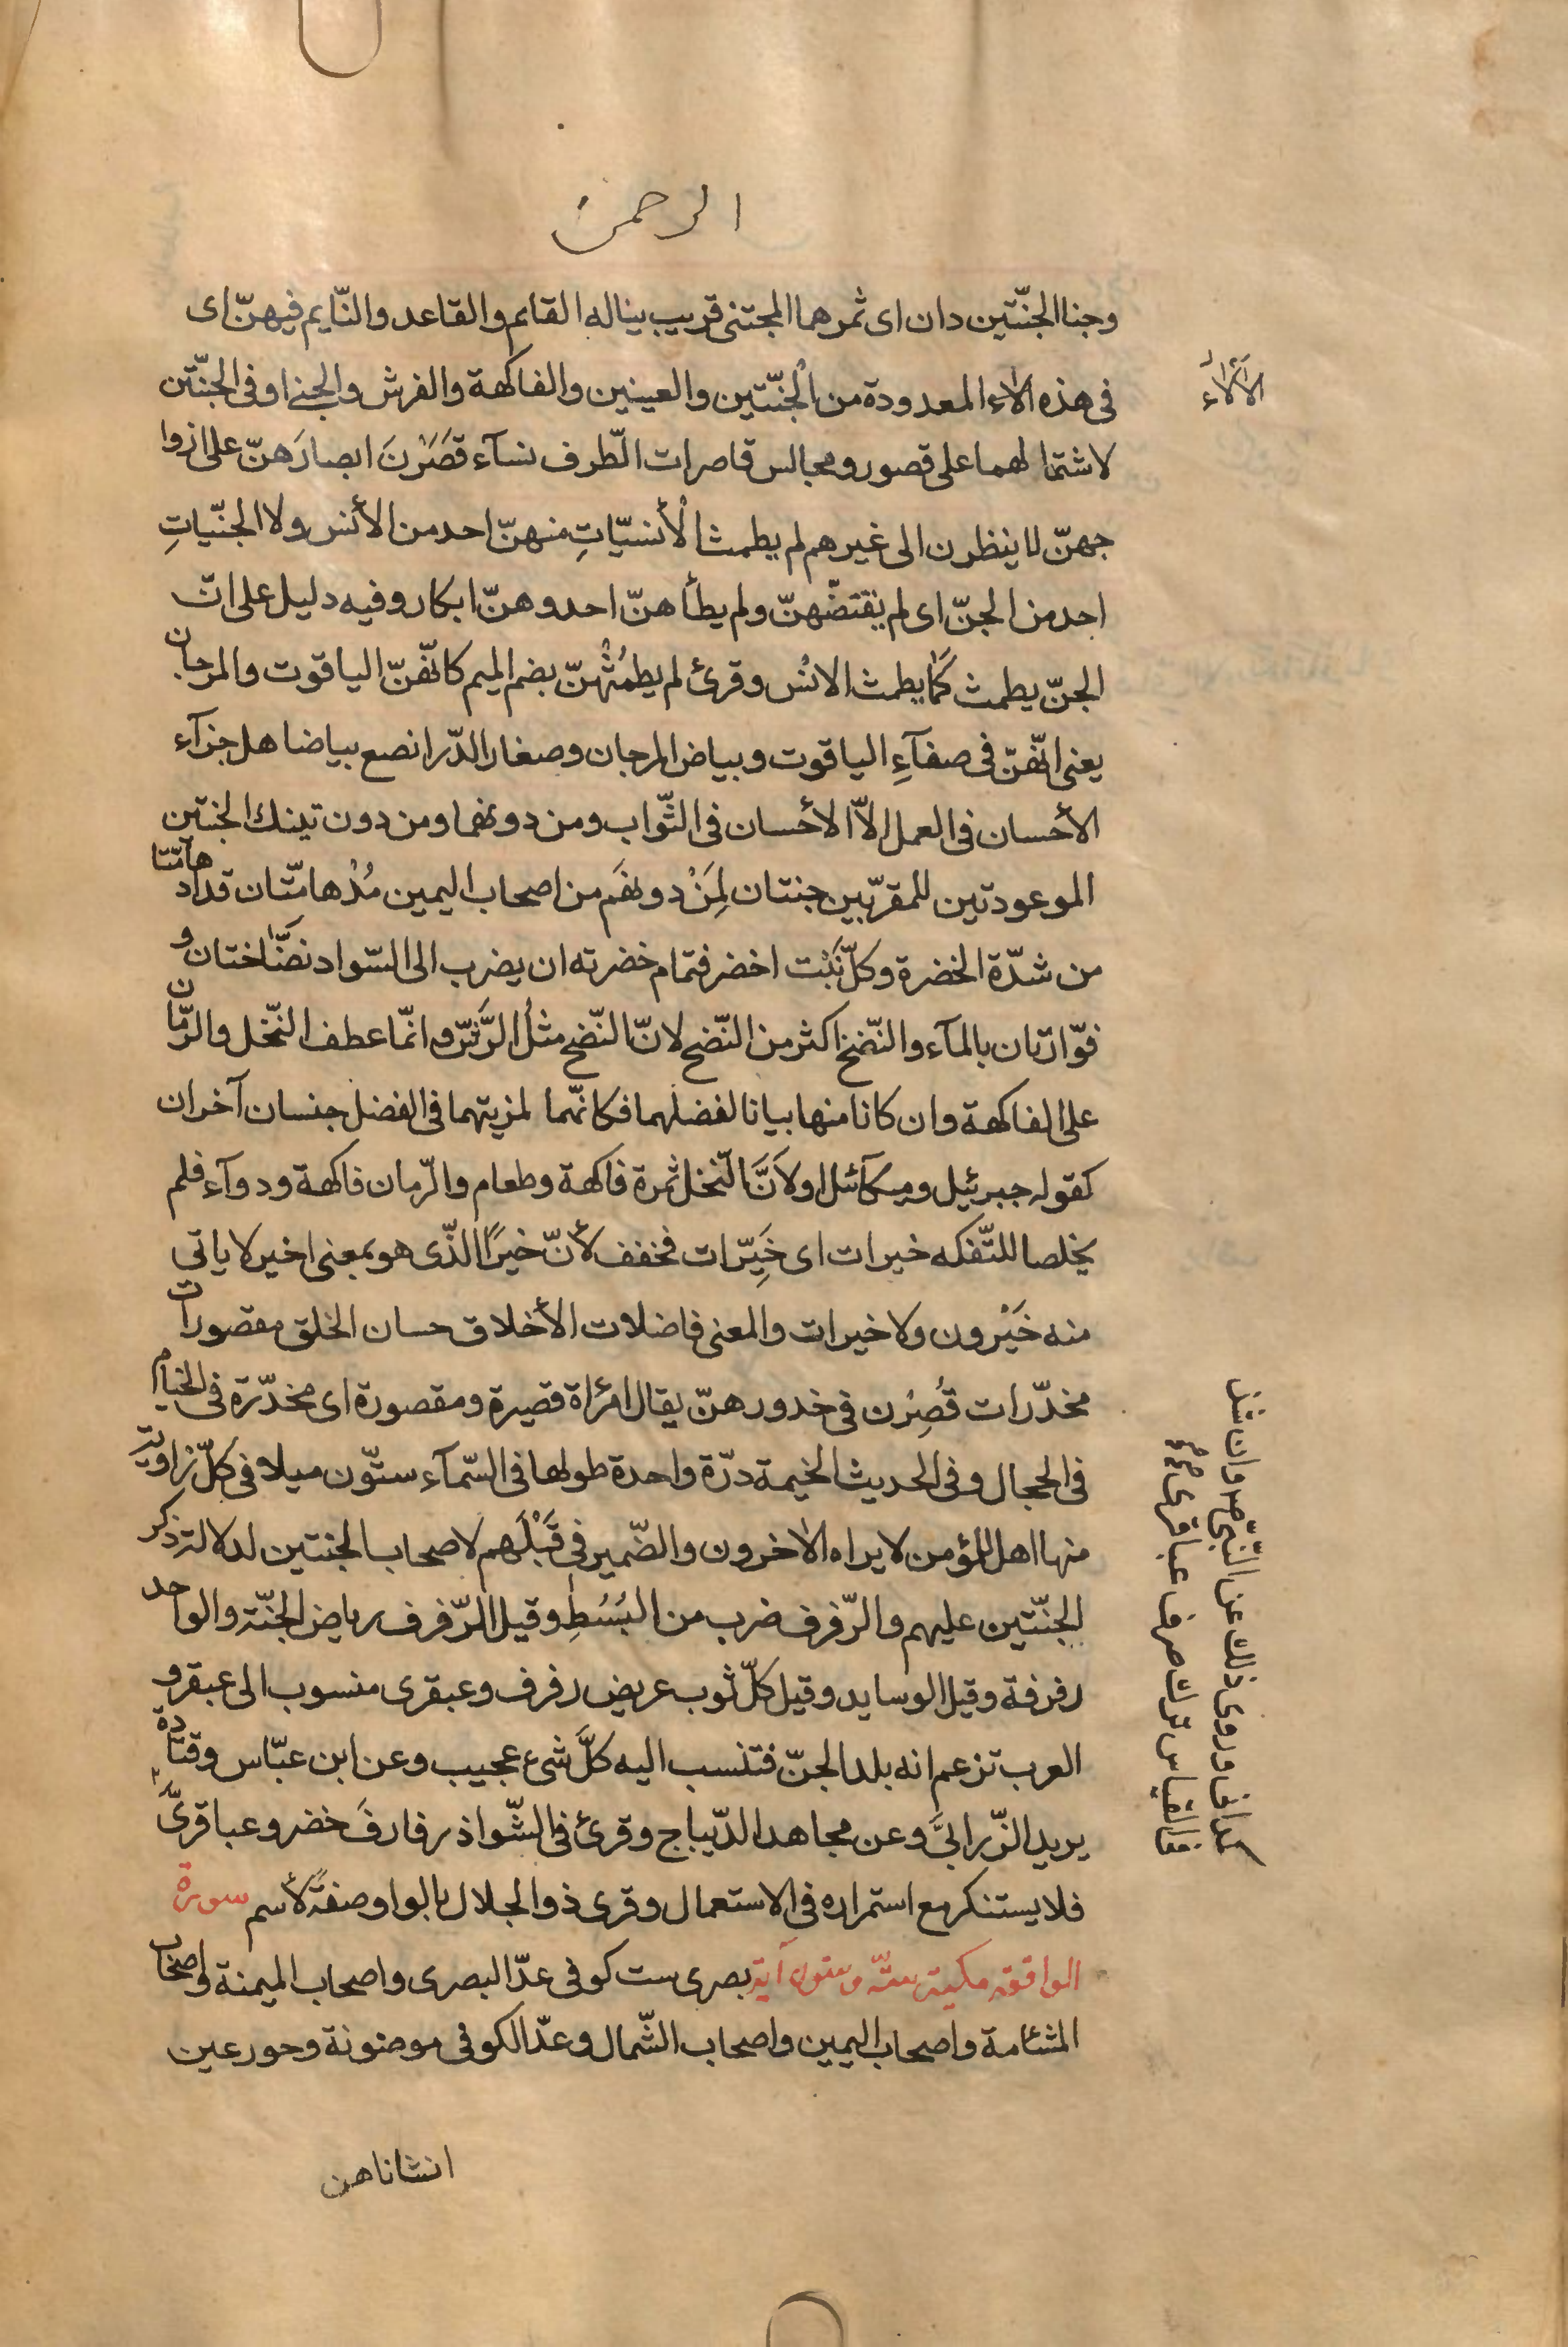 الرحمن
وجنا الجنّتين دان اى ثمرهما المجتنى قريب يناله القايم والقاعد والنّايم فيهنّ اى
فى هذه الآلاء المعدودة من الجنّتين والعينين والفاكهة والفرش والجنى او فى الجنّتين
لاشتمالهما على قصور ومجالس قاصرات الطّرف نسآء قَصَرْنَ ابصارَهنّ على ازوا
جهنّ لا ينظرن الى غيرهم لم يطمث الأنسيّاتِ منهنّ احد من الأنس ولا الجنّيّاتِ
احد من الجنّ اى لم يفتضّهنّ ولم يطأهنّ احد وهنّ ابكار وفيه دليل على انّ
الجنّ يطمث كما يطمث الانس وقرئ لم يطمُثْهنّ بضم الميم كانّهنّ الياقوت والمرجان
يعنى انّهنّ فى صفآءِ الياقوت وبياض المرجان وصغار الدّر انصع بياضا هل جزآء
الأحسان فى العمل الاّ الأحسان فى الثّواب ومن دونهما ومن دون تينك الجنتين
الموعودتين للمقرّبين جنتان لِمَنْ دونهم من اصحاب اليمين مُدْهامّتان قد ادهامّتا
من شدّة الخضرة وكلّ نَبْت اخضر فتمام خضرته ان يضرب الى السّواد نضّاختان و
فوّارتان بالمآء والنّضخ اكثر من النّضح لانّ النّضح مثلُ الرَّشّ وانّما عطف النّخل والرّمّان
على الفاكهة وان كانا منها بيانا لفضلهما فكانّهما لمزيتهما فى الفضل جنسان آخران
كقوله جبرئيل وميكآئيل او لاَنَّ النّخل ثمرة فاكهة وطعام والرّمان فاكهة ودوآء فلم
يخلصا للتّفكه خيرات اى خَيِّرات فخفف لأنّ خيرًا الّذى هو بمعنى اخير لا ياتى
منه خَيْرون ولا خيرات والمعنى فاضلات الأخلاق حسان الخلق مقصورات
مخدّرات قُصِرْن فى خدورهنّ يقال امرُاة قصيرة ومقصورة اى مخدّرة فى الخيام
فى الحجال وفى الحديث الخيمة درّة واحدة طولها فى السّمآء ستّون ميلا فى كلّ زاوية
منها اهل للمؤمن لا يراه الآخرون والضّمير فى قَبْلَهم لاصحاب الجنتين لدلالة ذكر
الجنّتين عليهم والرّفرف ضرب من البُسُطِ وقيل الرّفرف رياض الجنّة والواحد
رفرفة وقيل الوسايد وقيل كلّ ثوب عريض رفرف وعبقرى منسوب الى عبقر و
العرب تزعم انه بلد الجنّ فتنسب اليه كلَّ شىء عجيب وعن ابن عبّاس وقتادة
يريد الزّرابىَّ وعن مجاهد الدّيباج وقرئ فى الشّواذ رفارفَ خضر وعباقرىَّ
فلا يستنكر مع استمراره فى الاستعمال وقرى ذو الجلال بالواو صفةً لأسم سورة
الواقعة مكية ستّة وستون آية بصرى ست كوفى عدّ البصرى واصحاب الميمنة واصحاب
المشئامة واصحاب اليمين واصحاب الشّمال وعدّ الكوفى موضونة وحور عين
انشاناهن
الآلاء
كمدائنى وروى ذلك عن النّبى ص وان شذ
فى القياس ترك صرف عباقرى